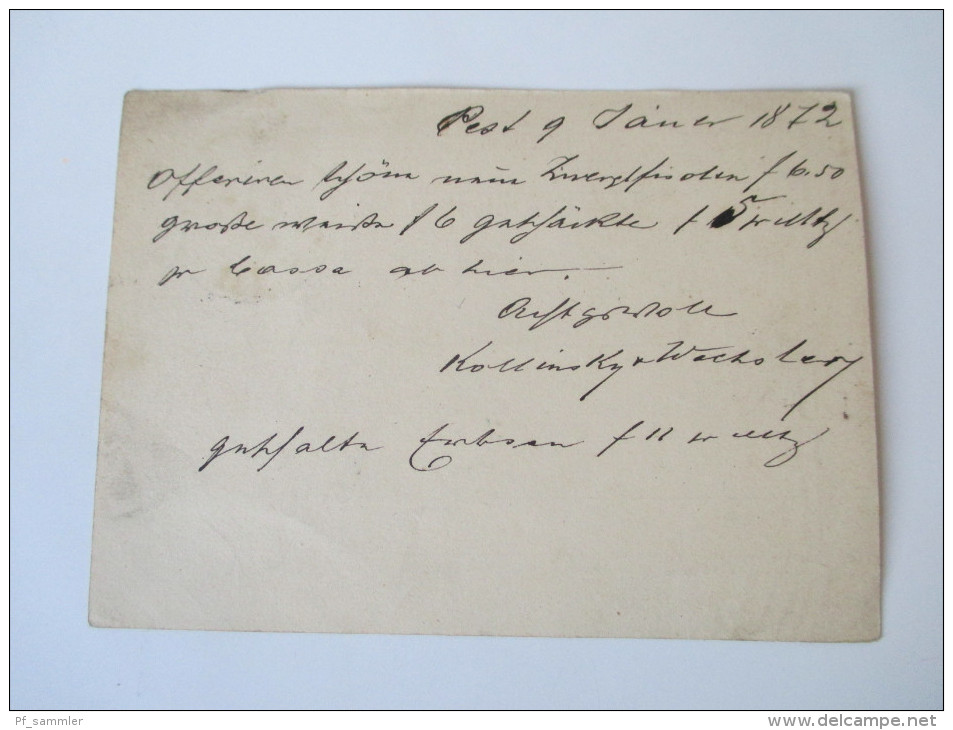 Pest 9 Jäner 1872
Offeriren schöne neue Zwergfisolen f 6.50
große weiße f 6 gescheckte f 5 pr Mtz
pr Cassa ab hier.
Achtungsvoll
Kollinsky & Wachsberg
Erbsen f 11 pr Mtz
Pf_sammler
www.delcampe.net